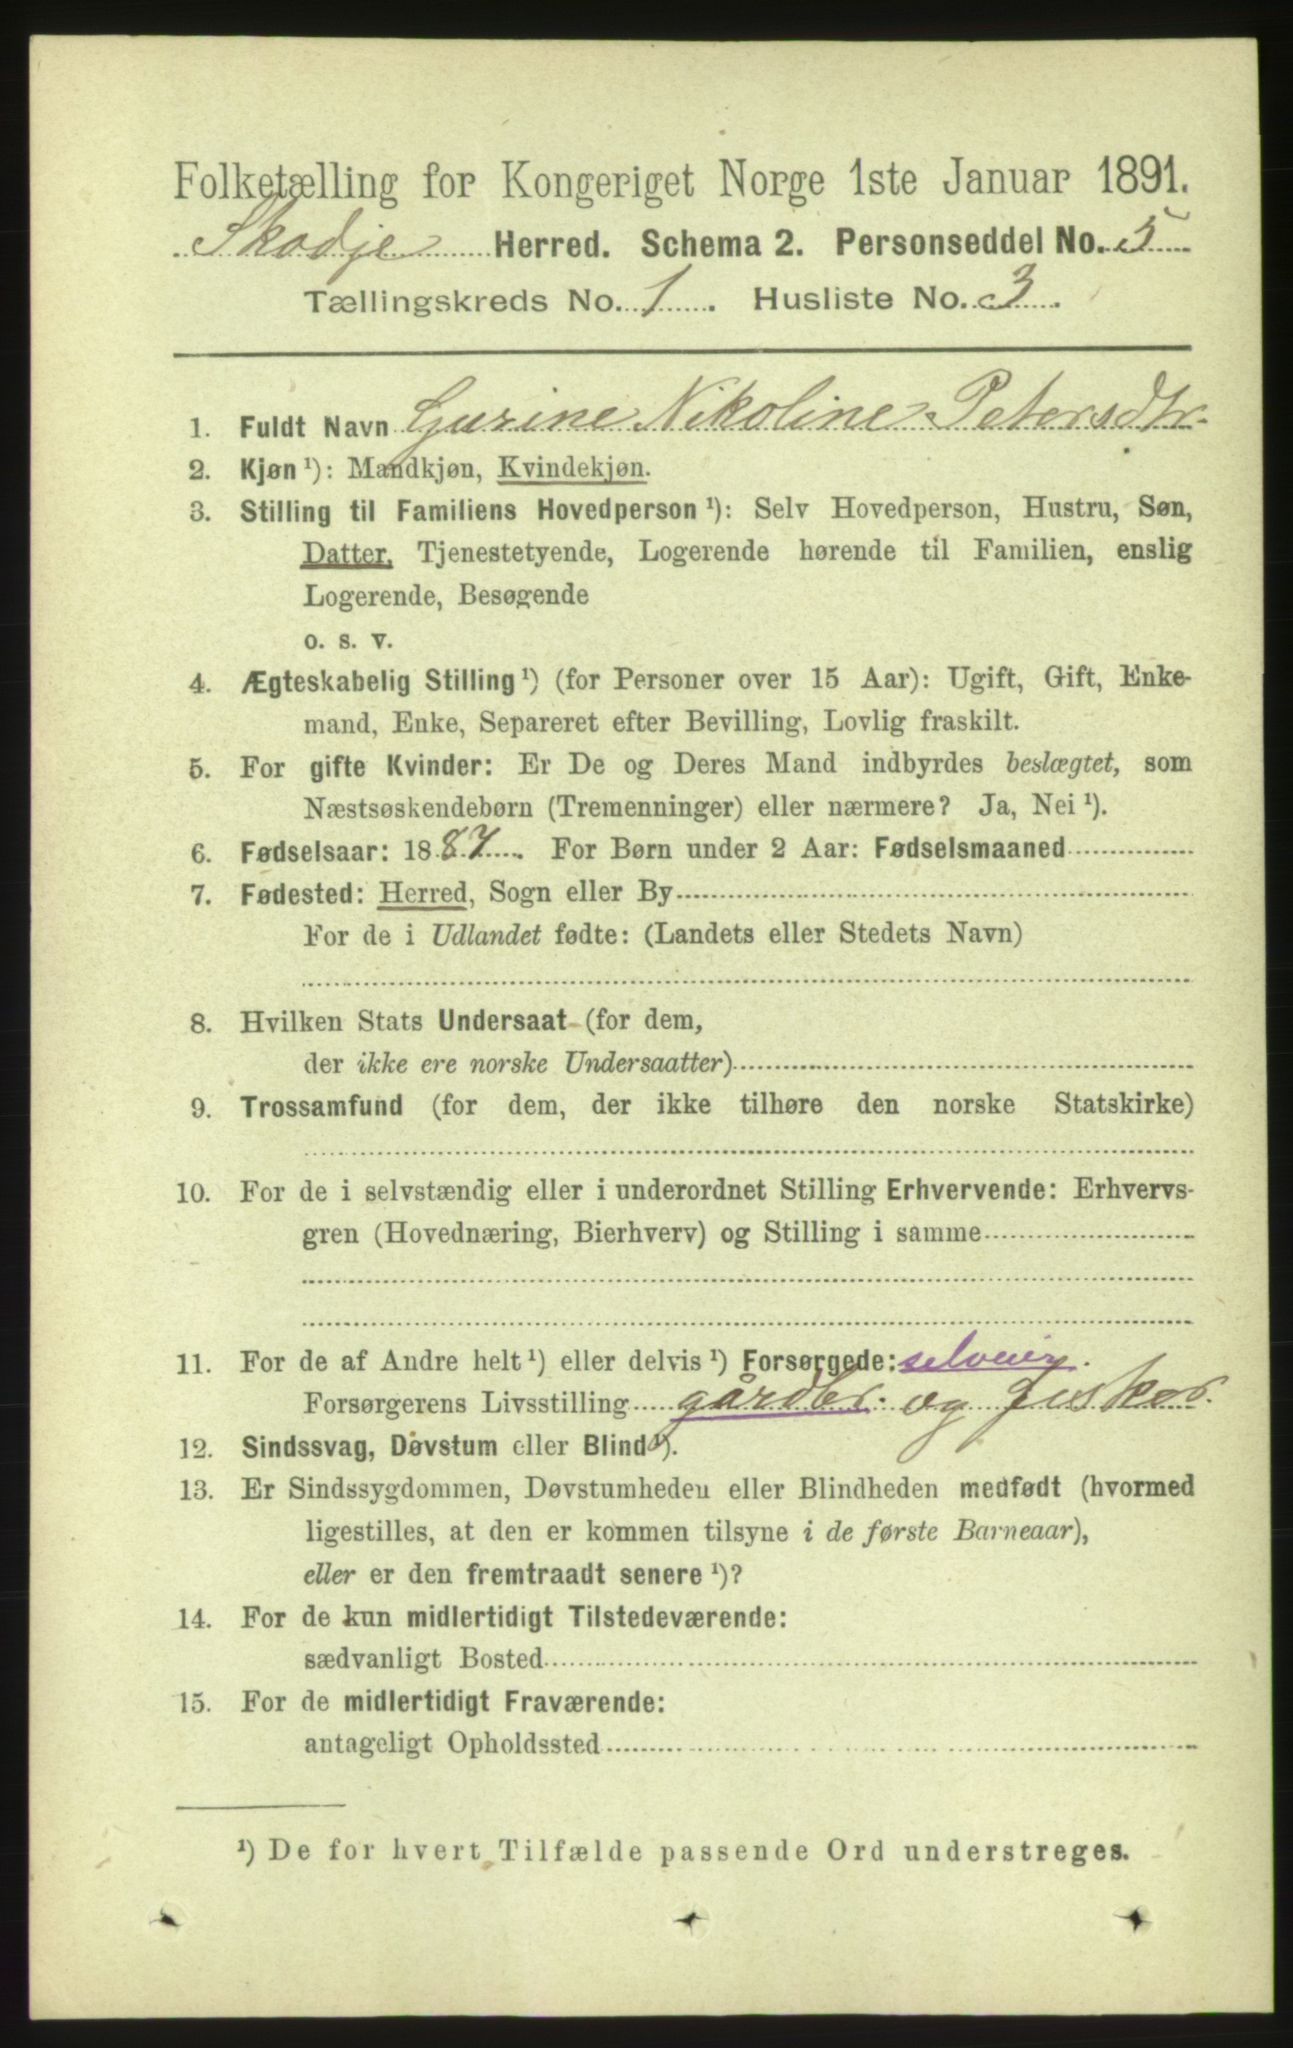 Folketælling for Kongeriget Norge 1ste Januar 1891.
Skodje Herred. Schema 2. Personseddel No. 5
Tællingskreds No. 1. Husliste No. 3.
1. Fuldt Navn Gurine Nikoline Petersdtr.
2. Kjøn ¹): Mandkjøn, Kvindekjøn.
3. Stilling til Familiens Hovedperson ¹): Selv Hovedperson, Hustru, Søn,
Datter, Tjenestetyende, Logerende hørende til Familien, enslig
Logerende, Besøgende
o. s. v.
4. Ægteskabelig Stilling ¹) (for Personer over 15 Aar): Ugift, Gift, Enke-
mand, Enke, Separeret efter Bevilling, Lovlig fraskilt.
5. For gifte Kvinder: Er De og Deres Mand indbyrdes beslægtet, som
Næstsøskendebørn (Tremenninger) eller nærmere? Ja, Nei ¹).
6. Fødselsaar: 1887. For Børn under 2 Aar: Fødselsmaaned
7. Fødested: Herred, Sogn eller By
For de i Udlandet fødte: (Landets eller Stedets Navn)
8. Hvilken Stats Undersaat (for dem,
der ikke ere norske Undersaatter)
9. Trossamfund (for dem, der ikke tilhøre den norske Statskirke)
10. For de i selvstændig eller i underordnet Stilling Erhvervende: Erhvervs-
gren (Hovednæring, Bierhverv) og Stilling i samme
11. For de af Andre helt ¹) eller delvis ¹) Forsørgede: selveier.
Forsørgerens Livsstilling gårdbr. og Fisker.
12. Sindssvag, Døvstum eller Blind ¹).
13. Er Sindssygdommen, Døvstumheden eller Blindheden medfødt (hvormed
ligestilles, at den er kommen tilsyne i de første Barneaar),
eller er den fremtraadt senere ¹)?
14. For de kun midlertidigt Tilstedeværende:
sædvanligt Bosted
15. For de midlertidigt Fraværende:
antageligt Opholdssted
¹) De for hvert Tilfælde passende Ord understreges.